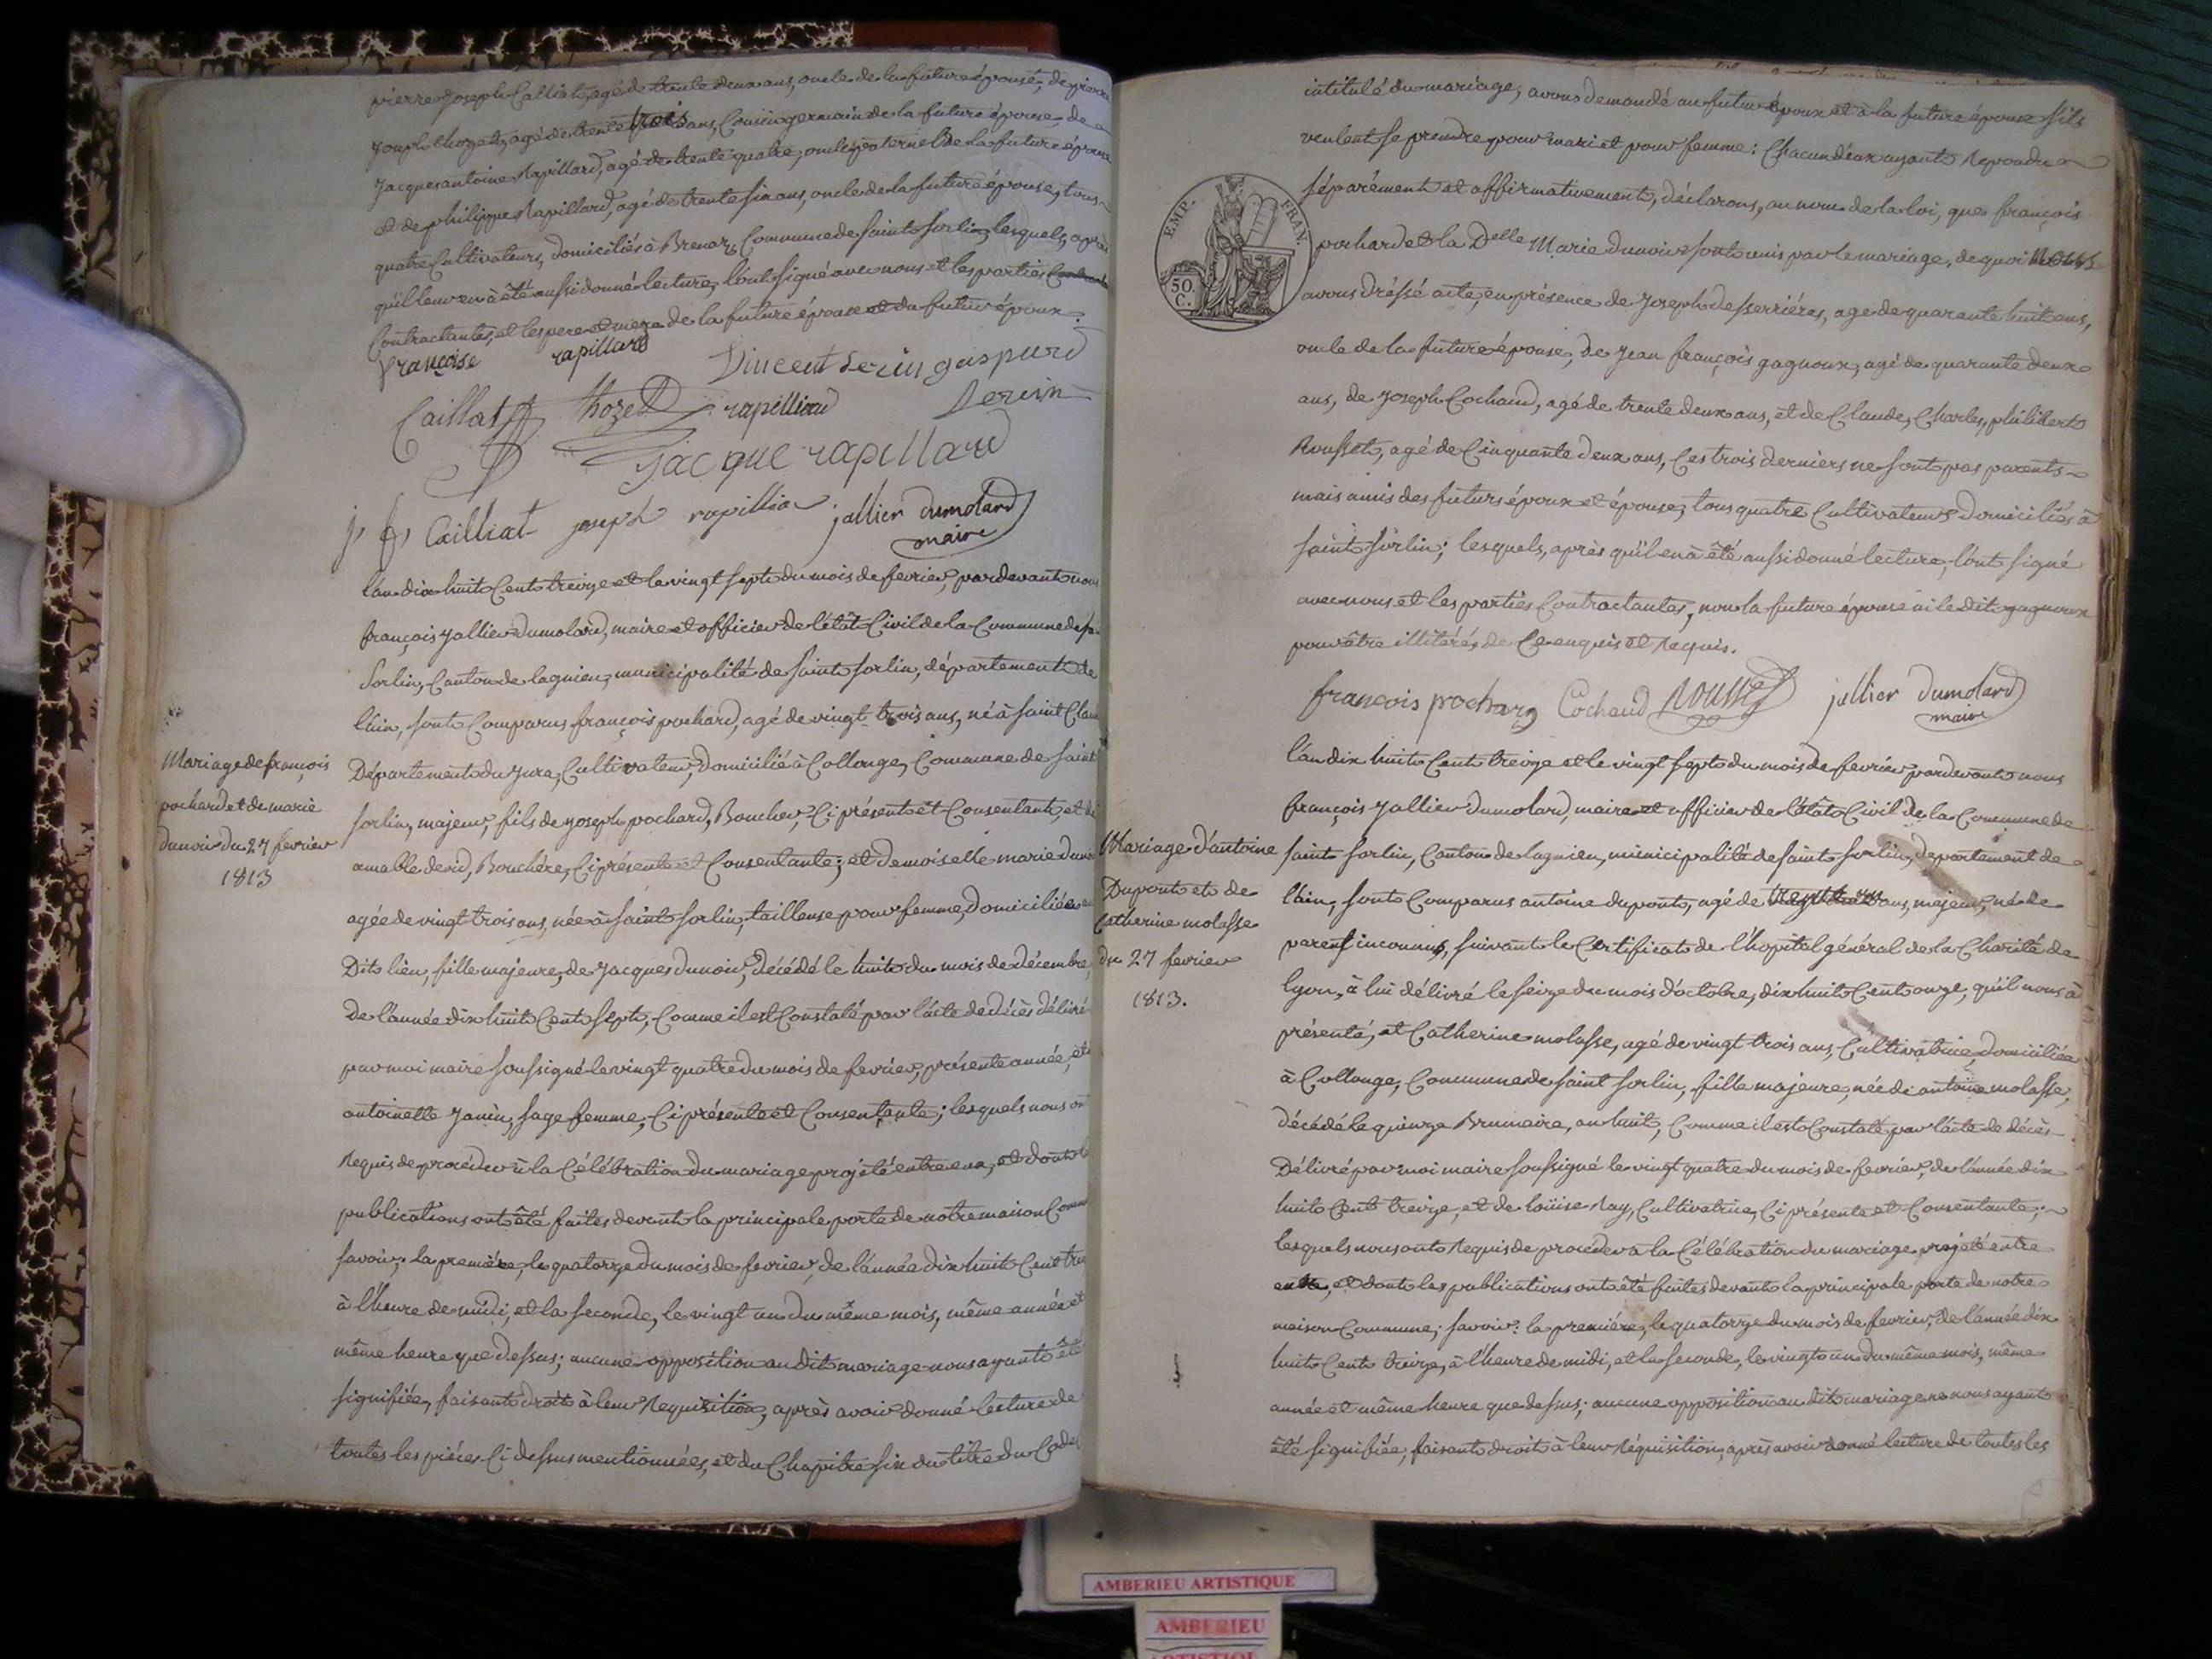 pierre Joseph Calliat, agé de trente deux ans, oncle de la future épouse, de pierre
Joseph thozet, agé de trente trois ans, Cousin germain de la future épouse, de
Jacques antoine Rapillard, agé de trente quatre, oncle paternel de la future épouse
et de philippe Rapillard, agé de trente six ans, oncle de la future épouse, tous
quatre Cultivateurs, domiciliés à Brenaz, Commune de saint sorlin, lesquels, après
qu'il leur en à été aussi donné lecture, l'ont signé avec nous et les parties
Contractantes, et les pere et mere de la future épouse et du futur époux.
françoise rapillard Vincent serin gaspard
serin
Caillat thozet rapilliard
jacque rapillard
j, f, Cailliat joseph rapillia jallier dumolard
maire
l'an dix huit Cent treize et le vingt sept du mois de fevrier, pardevant nous
françois Jallier Dumolard, maire et officier de l'état Civil de la Commune de
Sorlin, Canton de lagnieu, municipalité de saint sorlin, département de
l'ain, sont Comparus françois pochard, agé de vingt trois ans, né à saint Clau
Département du Jura, Cultivateur, domicilié à Collonge, Commune de saint
sorlin, majeur, fils de Joseph pochard, Boucher, Ci présent et Consentant, et de
amable david, Bouchère, Ci présente et Consentante; et demoiselle marie dunoir
agée de vingt trois ans, née à saint sorlin, tailleuse pour femme, domiciliée au
Dit lieu, fille majeure, de Jacques Dunoir, décédé le huit du mois de décembre,
De l'année dix huit Cent sept, Comme il est Constaté par l'acte de décès délivré
par moi maire soussigné le vingt quatre du mois de fevrier, présente année, et
antoinette Janin, sage femme, Ci présente et Consentante; lesquels nous on
Requis de procéder à la Célébration du mariage projeté entre eux, et dont
publications ont été faites devant la principale porte de notre maison Comm
savoir; la première, le quatorze du mois de fevrier, de l'année dix huit Cent trei
à l'heure de midi, et la seconde, le vingt un du même mois, même année et
même heure que dessus; aucune opposition au dit mariage nous ayant été
signifiée, faisant droit à leur Requisition, après avoir donné lecture de
toutes les pièces Ci dessus mentionnées, et du Chapitre six du titre du Code
Mariage de françois
pochard et de marie
dunoir du 27 fevrier
1813
intitulé du mariage, avons demandé au futur époux et à la future épouse s'ils
veulent se prendre pour mari et pour femme: Chacun d'eux ayant Repondu
séparément et affirmativement, déclarons, au nom de la loi, que françois
pochard et la Delle Marie dunoir sont unis par le mariage, de quoi nous
avons dréssé acte, en présence de Joseph desserriéres, agé de quarante huit ans,
oncle de la future épouse, de Jean françois gagnoux, agé de quarante deux
ans, de Joseph Cochaud, agé de trente deux ans, et de Claude, Charles, philibert
Rousset, agé de Cinquante deux ans, Ces trois derniers ne sont pas parents
mais amis des futurs époux et épouse, tous quatre Cultivateurs domiciliés à
saint sorlin; lesquels, après qu'il en à été aussi donné lecture, l'ont signé
avec nous et les parties Contractantes, non la future épouse ni le dit gagnoux
pour être illitérés de Ce enquis et Requis.
EMP. FRAN.
50.
C.
françois pochard Cochaud Rousset jallier dumolard
maire
l'an dix huit Cent treize et le vingt sept du mois de fevrier, pardevant nous
françois Jallier dumolard, maire et officier de l'état Civil de la Commune de
saint sorlin, Canton de lagnieu, municipalité de saint sorlin, departement de
l'ain, sont Comparus antoine dupont, agé de ans, majeur, né de
parens inconnus, suivant le Certificat de l'hopital général de la Charité de
lyon, à lui délivré le seize du mois d'octobre, dix huit Cent onze, qu'il nous à
présenté, et Catherine molasse, agé de vingt trois ans, Cultivatrice, domiciliée
à Collonge, Commune de saint sorlin, fille majeure, née de antoine molasse,
décédé le quinze Brumaire, an huit, Comme il est Constaté par l'acte de décès
Délivré par moi maire soussigné le vingt quatre du mois de fevrier, de l'année dix
huit Cent treize, et de loüise Ray, Cultivatrice, Ci présente et Consentante;
lesquels nous ont Requis de procéder à la Célébration du mariage projeté entre
eux, et dont les publications ont été faites devant la principale porte de notre
maison Commune; savoir: la première, le quatorze du mois de fevrier, de l'année dix
huit Cent treize, à l'heure de midi, et la seconde, le vingt un du même mois, même
année et même heure que dessus; aucune opposition au dit mariage ne nous ayant
été signifiée, faisant droit à leur réquisition, après avoir donné lecture de toutes les
Mariage d'antoine
Dupont et de
Catherine molasse
du 27 fevrier
1813.
AMBERIEU ARTISTIQUE
AMBERIEU
ARTISTIQUE